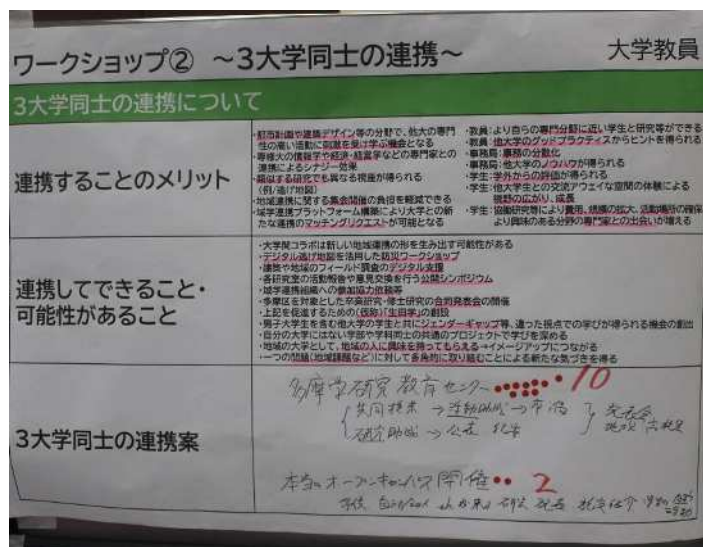 ワークショップ② ～3大学同士の連携～
大学教員
3大学同士の連携について
連携することのメリット
・都市計画や建築デザイン等の分野で、他大の専門
性の高い活動に刺激を受け学ぶ機会となる
・専修大の情報学や経済・経営学などの専門家との
連携によるシナジー効果
・類似する研究でも異なる視座が得られる
(例:逃げ地図)
・地域連携に関する集会開催の負担を軽減できる
・域学連携プラットフォーム構築により大学との新
たな連携のマッチングリクエストが可能となる
・教員:より自らの専門分野に近い学生と研究等ができる
・教員:他大学のグッドプラクティスからヒントを得られる
・事務局:事務の分散化
・事務局:他大学のノウハウが得られる
・学生:学外からの評価が得られる
・学生:他大学生との交流アウェイな空間の体験による
視野の広がり、成長
・学生:協働研究等により費用、規模の拡大、活動場所の確保
より興味のある分野の専門家との出会いが増える
連携してできること・
可能性があること
・大学間コラボは新しい地域連携の形を生み出す可能性がある
・デジタル逃げ地図を活用した防災ワークショップ
・建築や地域のフィールド調査のデジタル支援
・各研究室の活動報告や意見交換を行う公開シンポジウム
・域学連携組織への参加協力依頼等
・多摩区を対象とした卒業研究・修士研究の合同発表会の開催
・上記を促進するための(仮称)「生田学」の創設
・男子大学生を含む他大学の学生と共にジェンダーギャップ等、違った視点での学びが得られる機会の創出
・自分の大学にはない学部や学科同士の共通のプロジェクトで学びを深める
・地域の大学として、地域の人に興味を持ってもらえる→イメージアップにつながる
・一つの問題(地域課題など)に対して多角的に取り組むことによる新たな気づきを得る
3大学同士の連携案
多摩学研究教育センター 10
共同授業 → 活動助成
研究助成 → 公表 発表会
本当のオープンキャンパス開催 2